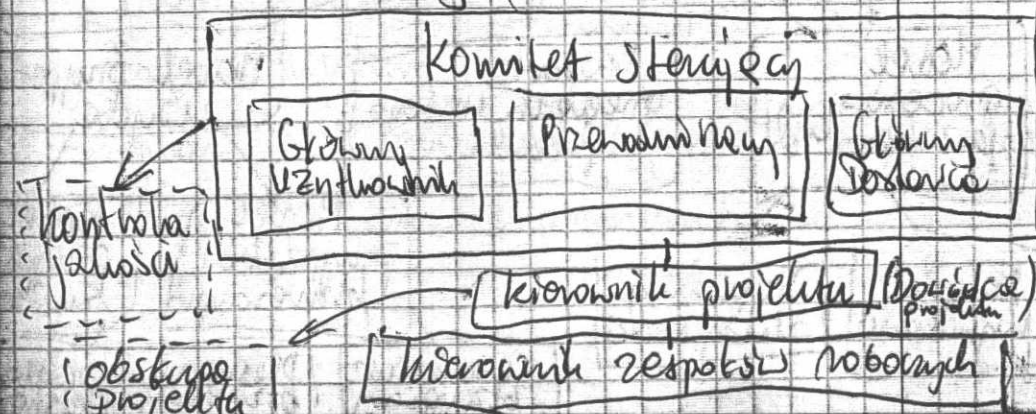 Komitet Sterujący
Główny
Użytkownik
Przewodniczący
Główny
Dostawca
Kontrola
jakości
kierownik projektu (Dowódca
projektu)
obsługa
projektu
kierownik zespołów roboczych